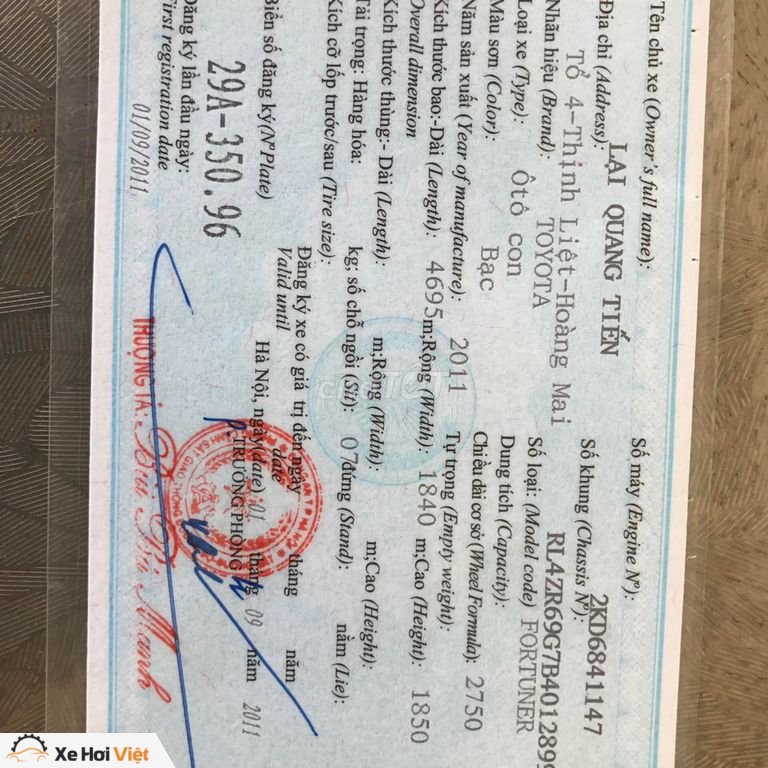 Tên chủ xe (Owner's full name):
LẠI QUANG TIẾN
Số máy (Engine Nº):
2KD6841147
Địa chỉ (Address):
Tổ 4-Thịnh Liệt-Hoàng Mai
Số khung (Chassis Nº):
RL4ZR69G7B4012899
Nhãn hiệu (Brand): TOYOTA
Số loại: (Model code) FORTUNER
Loại xe (Type): Ôtô con
Dung tích (Capacity):
Màu sơn (Color): Bạc
Chiều dài cơ sở (Wheel Formula): 2750
Năm sản xuất (Year of manufacture): 2011
Tự trọng (Empty weight):
Kích thước bao:-Dài (Length): 4695m;Rộng (Width): 1840 m;Cao (Height): 1850
Overall dimension
Kích thước thùng:- Dài (Length): m;Rộng (Width): m;Cao (Height):
Tải trọng: Hàng hóa: kg; số chỗ ngồi (Sit): 07đứng (Stand): nằm (Lie):
Kích cỡ lốp trước/sau (Tire size):
Đăng ký xe có giá trị đến ngày tháng năm
Valid until date
Biển số đăng ký(Nº Plate)
29A-350.96
Hà Nội, ngày(date) 01 tháng 09 năm 2011
P.TRƯỞNG PHÒNG
Đăng ký lần đầu ngày:
First registration date
01/09/2011
THƯỢNG TÁ:
CHỢ TỐT
Xe Hơi Việt